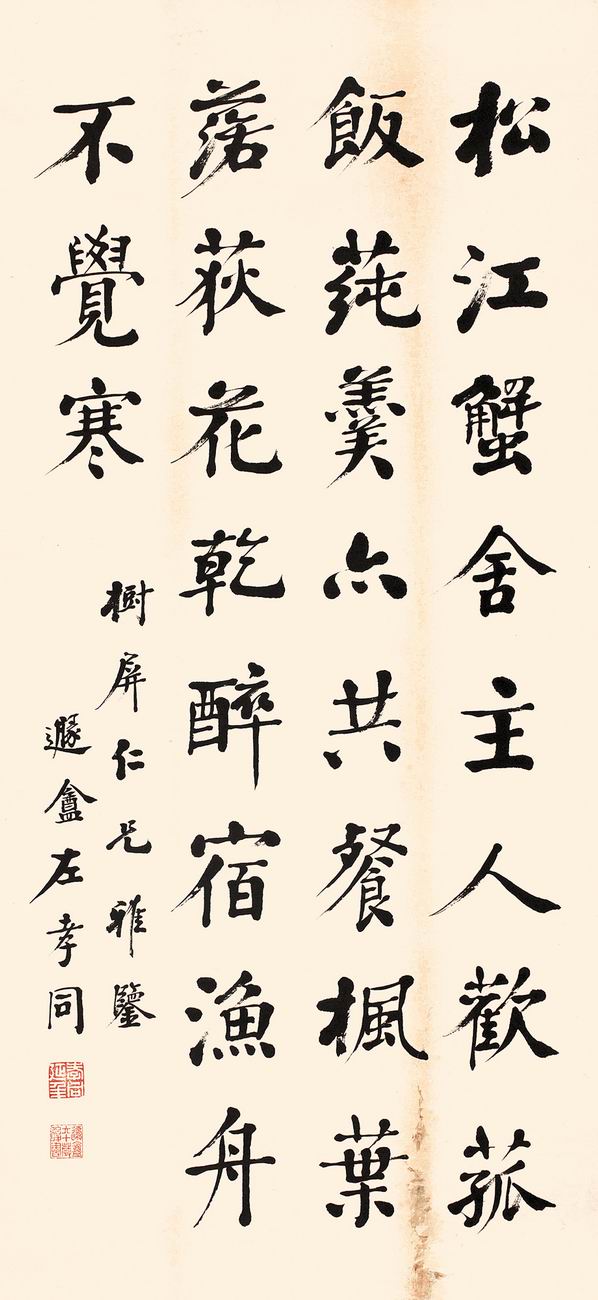 松江蟹舍主人歡菰
飯蒓羹亦共餐楓葉
落荻花乾醉宿漁舟
不覺寒
樹屏仁兄雅鑒
遯盦左孝同